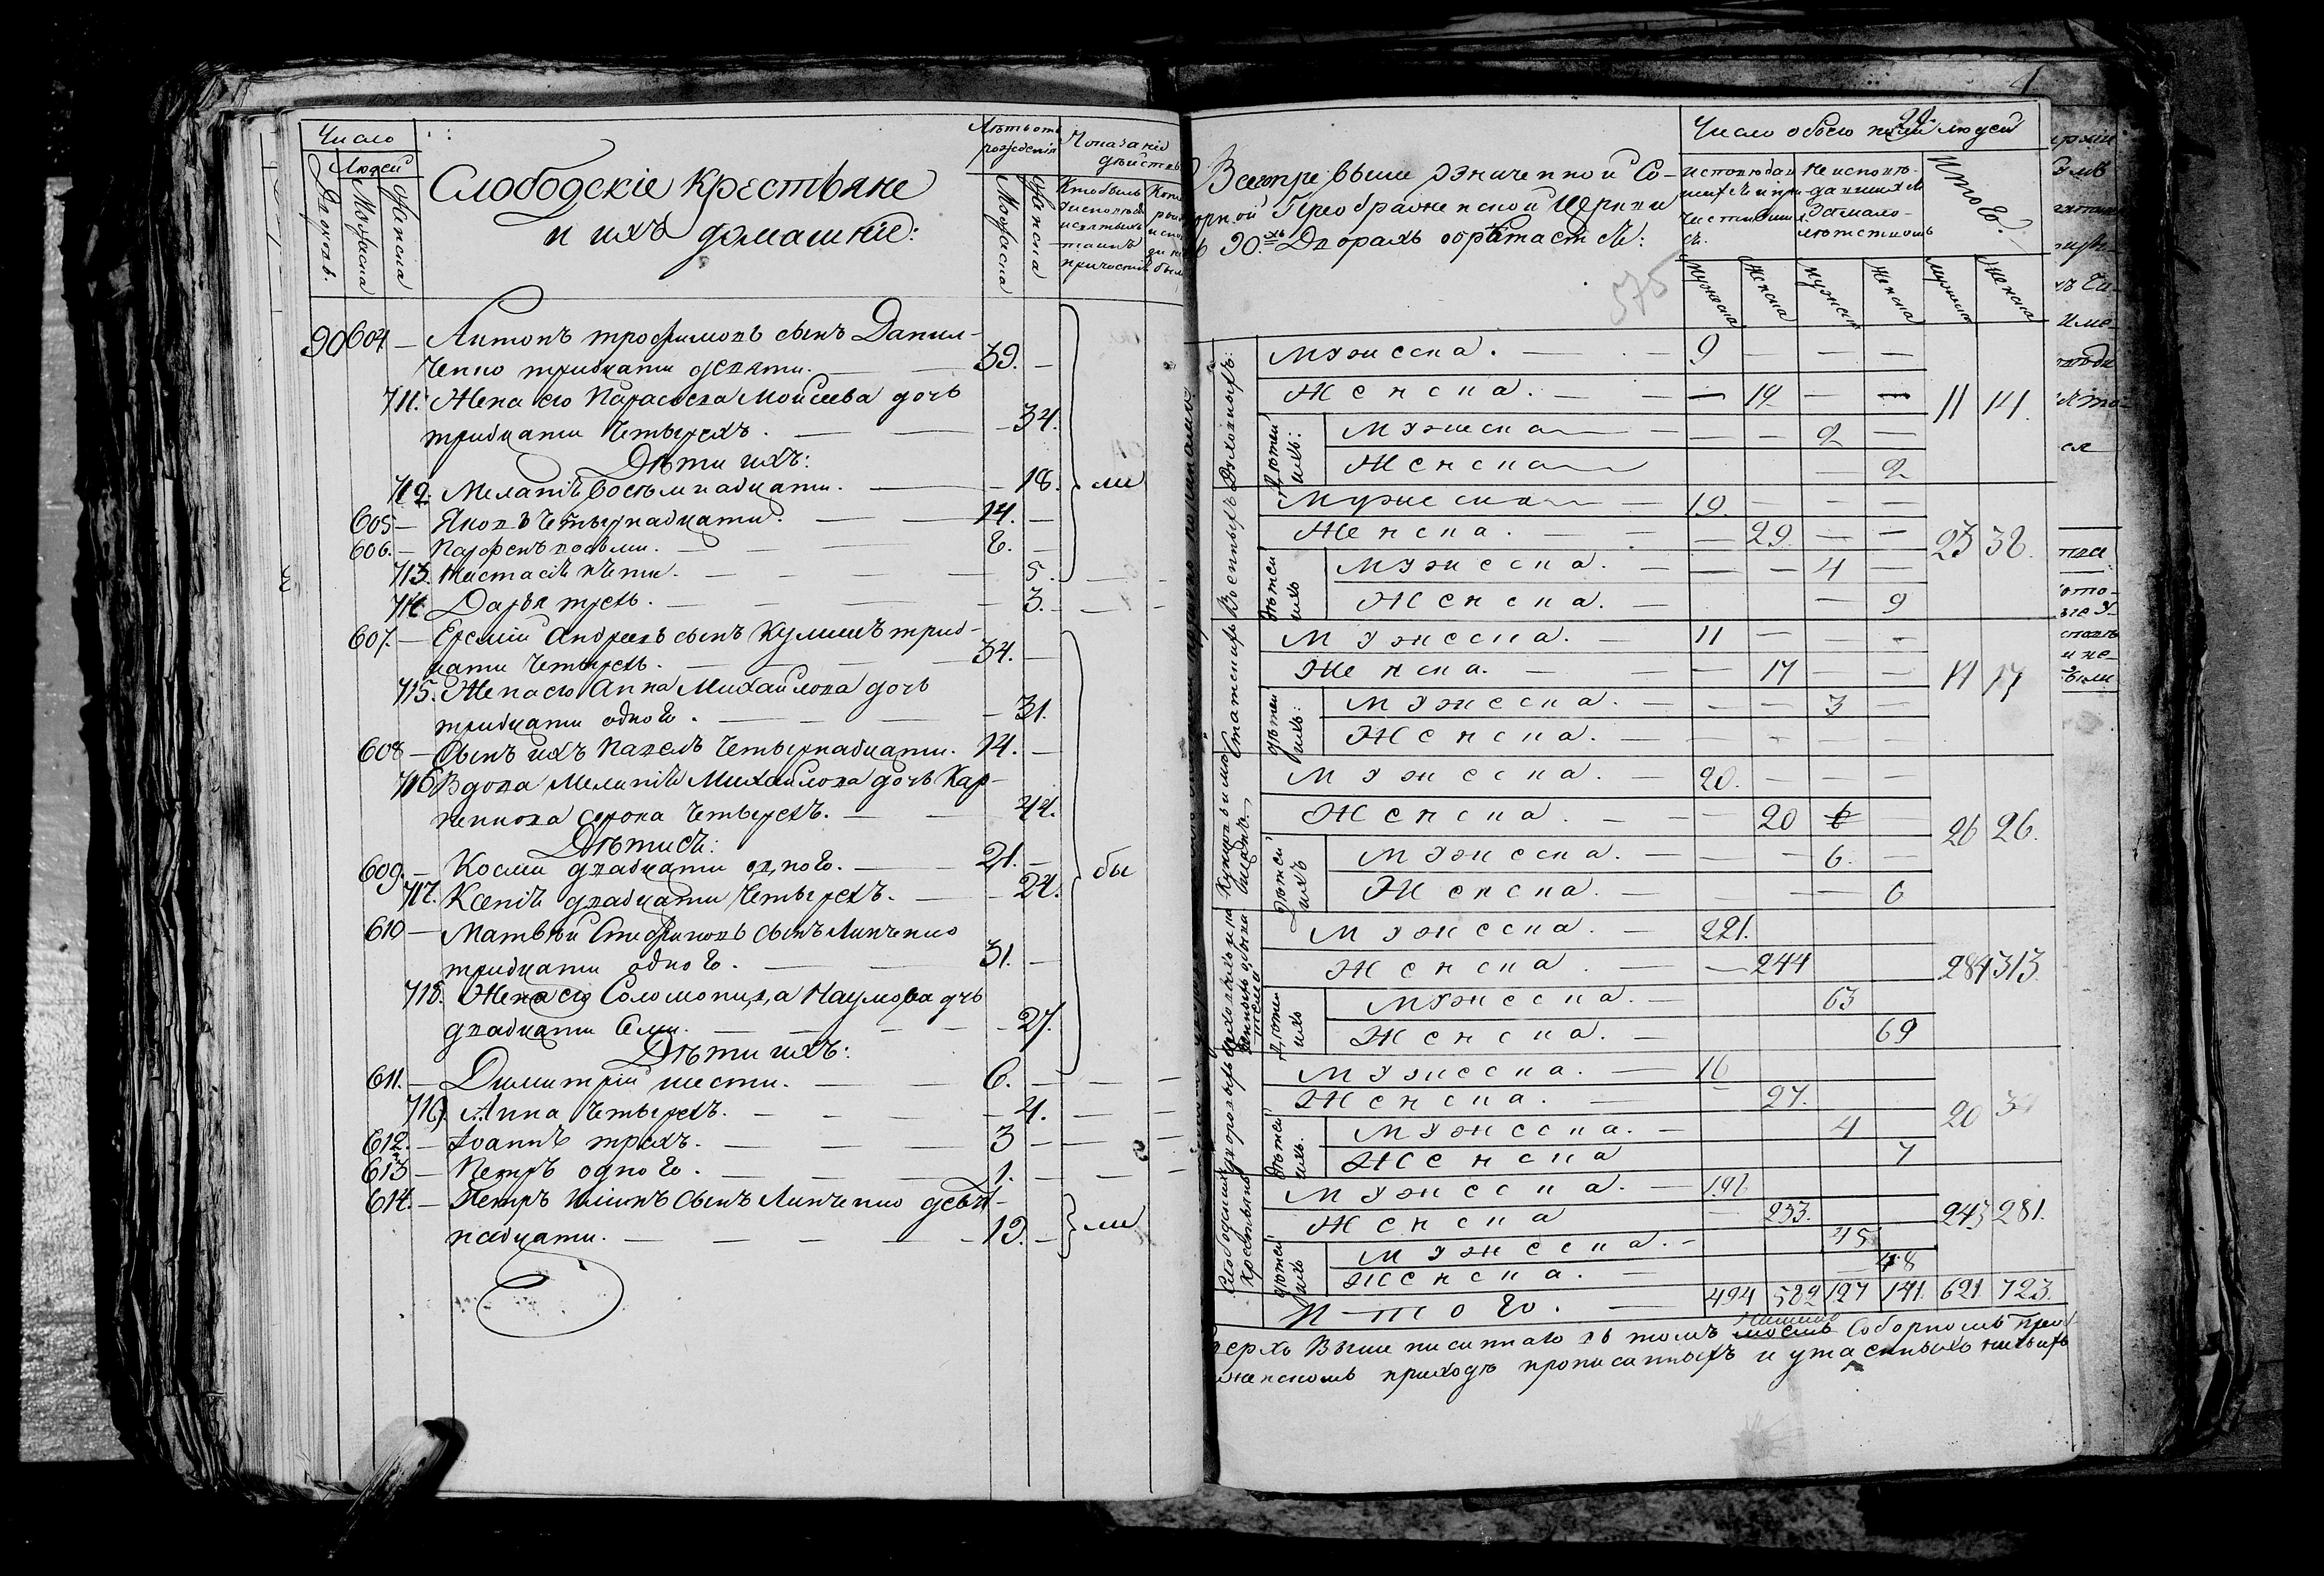 Число
Людей
Дворовъ.
Мужеска
Женска
Слободскіе Крестьяне
и ихъ домашніе:
Лѣтъ отъ
рожденія
Мужеска
Женска
Показаніе
дѣйствъ
Кто былъ
у исповѣди
и святыхъ
таинъ
причастія
90 604 — Антонъ трофимовъ сынъ Данил-
ченко тридцати девяти. — 39. —
711. Жена его Параскева Моисеева дочь
тридцати Четырехъ. — — 34.
Дѣти ихъ:
712. Меланія Восемнадцати. — 18. ли
605 — Яковъ Четырнадцати. — 14. —
606. — Парфенъ восьми. — 8. —
713. Настасія пяти. — — 5. —
714. Дарья трехъ. — — 3. —
607. — Еремій Андреевъ сынъ Кулишъ трид-
цати Четырехъ. — 34. —
715. Жена его Анна Михайлова дочь
тридцати одного. — — 31.
608 — Сынъ ихъ Павелъ Четырнадцати. 14. —
716 Вдова Меланія Михайлова дочь Кар-
пенкова сорока Четырехъ. — 44.
Дѣти еѣ:
609. — Косма двадцати одного. — 21. — бы
717. Ксенія двадцати Четырехъ. — 24.
610 — Матвѣй Стефановъ сынъ Линченко
тридцати одного. — 31. —
718. Жена его Соломонида Наумова дчь
двадцати Семи. — — 27.
Дѣти ихъ:
611. — Димитрій шести. — 6. —
719. Анна Четырехъ. — — 4. —
612. — Іоаннъ трехъ. — 3 —
613 — Петръ одного. — 1. —
614. — Петръ сынъ Линченко девят-
надцати. — 19. — ли
Всего при выше означенной Со-
борной Преображенской Церкви
90.хъ Дворахъ обрѣтается:
575
Число обоего пола людей
исповѣдав
шихся и при
частивших
ся.
не исповѣ-
давшихся
за мало-
лѣтствомъ
Итого.
мужеска
Женска
мужеск
Женска
мужеска
Женска
Духовныхъ:
мужеска. — 9 — — —
Женска. — — 14 — — 11 14.
Дѣтей ихъ:
мужеска — — — 2 —
Женска — 2
Военныхъ
мужеска — 19. — — —
Женска. — — 29 — — 23 38.
Дѣтей ихъ
мужеска. — — — 4 —
Женска. — 9
Статскихъ
мужеска. — 11 — — —
Женска. — — 17 — — 14 17
Дѣтей ихъ:
мужеска. — — — 3 —
Женска. — — — —
мужеска. — 20. — — —
Женска. — — 20 26 26.
Дѣтей ихъ
мужеска. — — — 6. —
Женска. — — — 6
мужеска. — 221.
Женска. — 244 284 313.
Дѣтей ихъ
мужеска. — 63
Женска. — 69
мужеска. — 16
Женска. — 27. 20 34
Дѣтей ихъ.
мужеска. — 4
Женска 7
Слободскихъ Крестьянъ
мужеска. — 198
Женска — 233. 243 281.
Дѣтей ихъ
мужеска. — 45
Женска. — 48
Итого. — 494 582 127 141. 621. 723.
Сверхъ Выше писаннаго въ томъ Соборномъ Прео-
женскомъ приходѣ прописанныхъ и